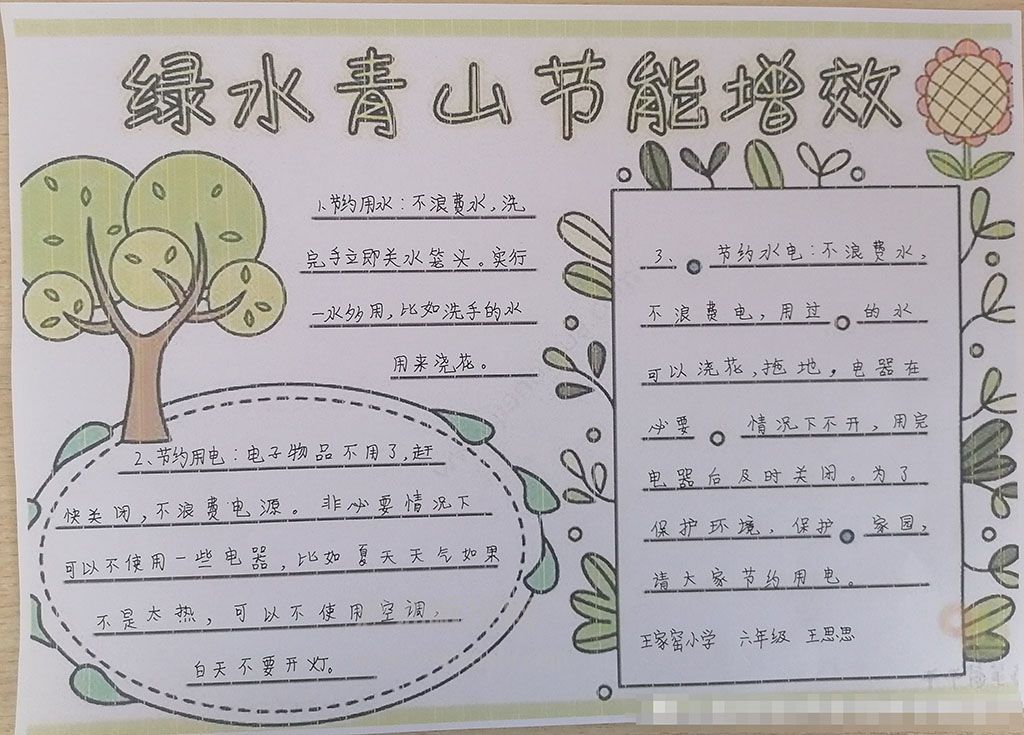 绿水青山节能增效
1、节约用水：不浪费水，洗
完手立即关水笼头。实行
一水多用，比如洗手的水
用来浇花。
2、节约用电：电子物品不用了，赶
快关闭，不浪费电源。非必要情况下
可以不使用一些电器，比如夏天天气如果
不是太热，可以不使用空调，
白天不要开灯。
3、节约水电：不浪费水，
不浪费电，用过的水
可以浇花，拖地，电器在
必要情况下不开，用完
电器后及时关闭。为了
保护环境，保护家园，
请大家节约用电。
王家窑小学 六年级 王思思